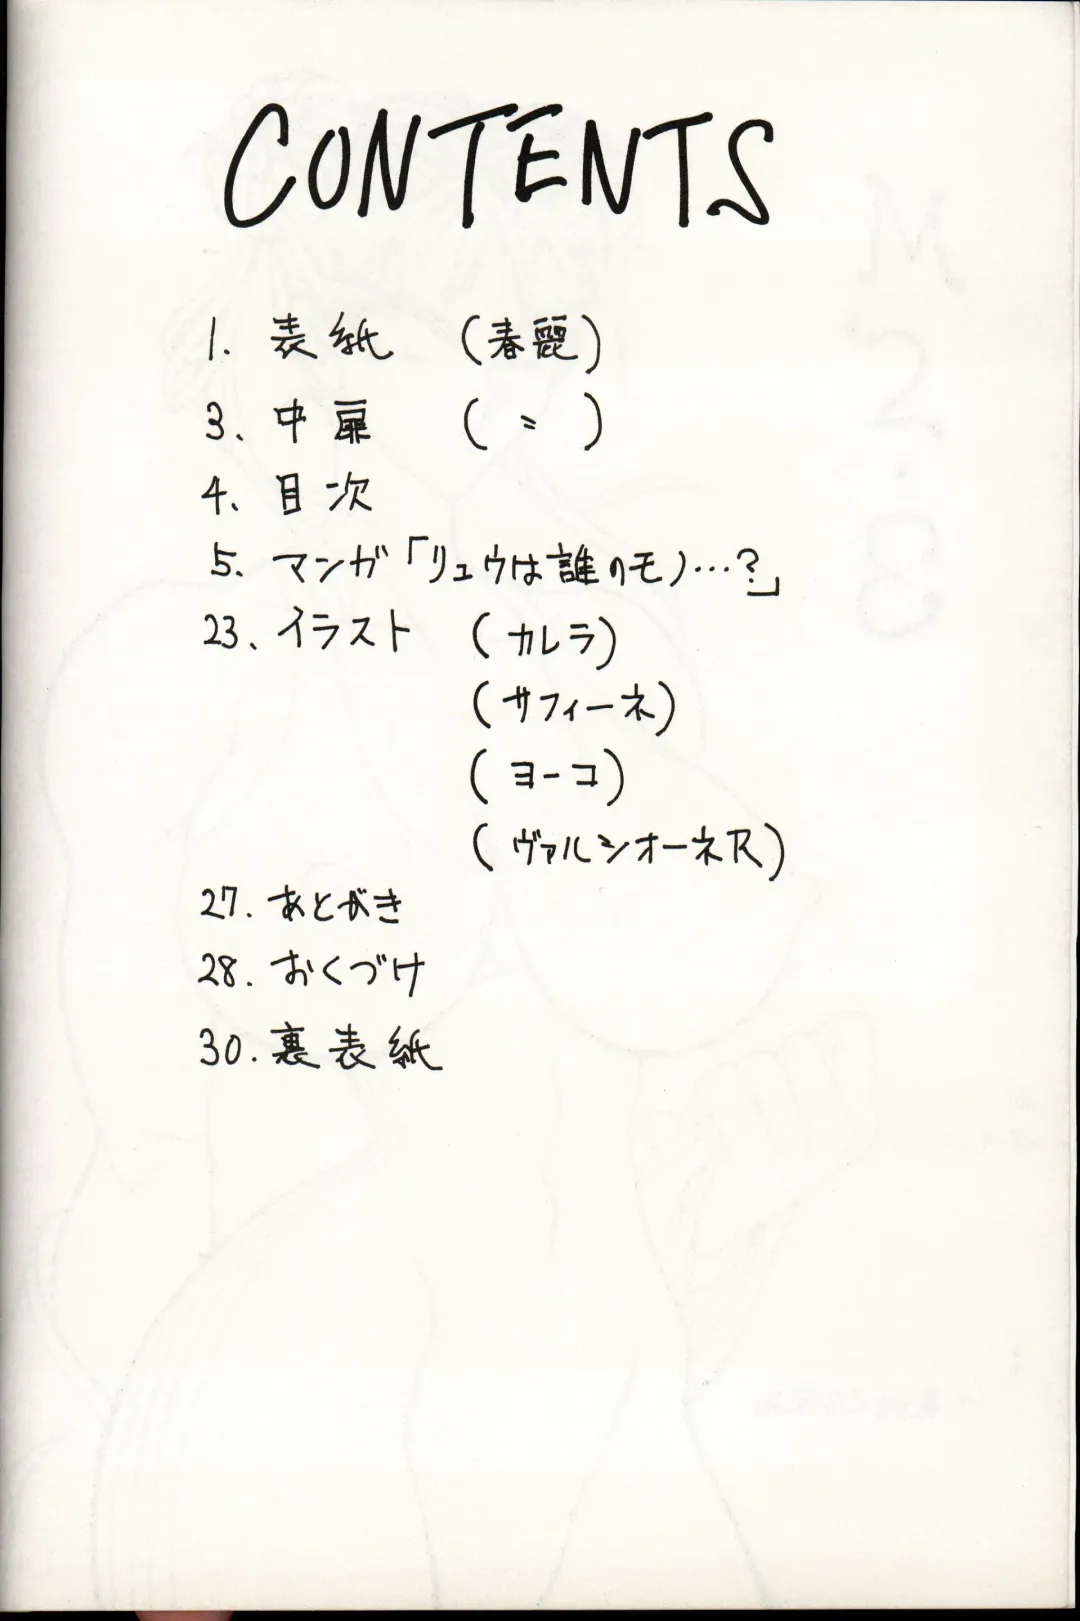 CONTENTS
1. 表紙 (春麗)
3、中扉 ( 〃 )
4、目次
5、マンガ「リュウは誰のモノ…?」
23、イラスト (カレラ)
(サフィーネ)
(ヨーコ)
(ヴァルシオーネR)
27. あとがき
28. おくづけ
30. 裏表紙